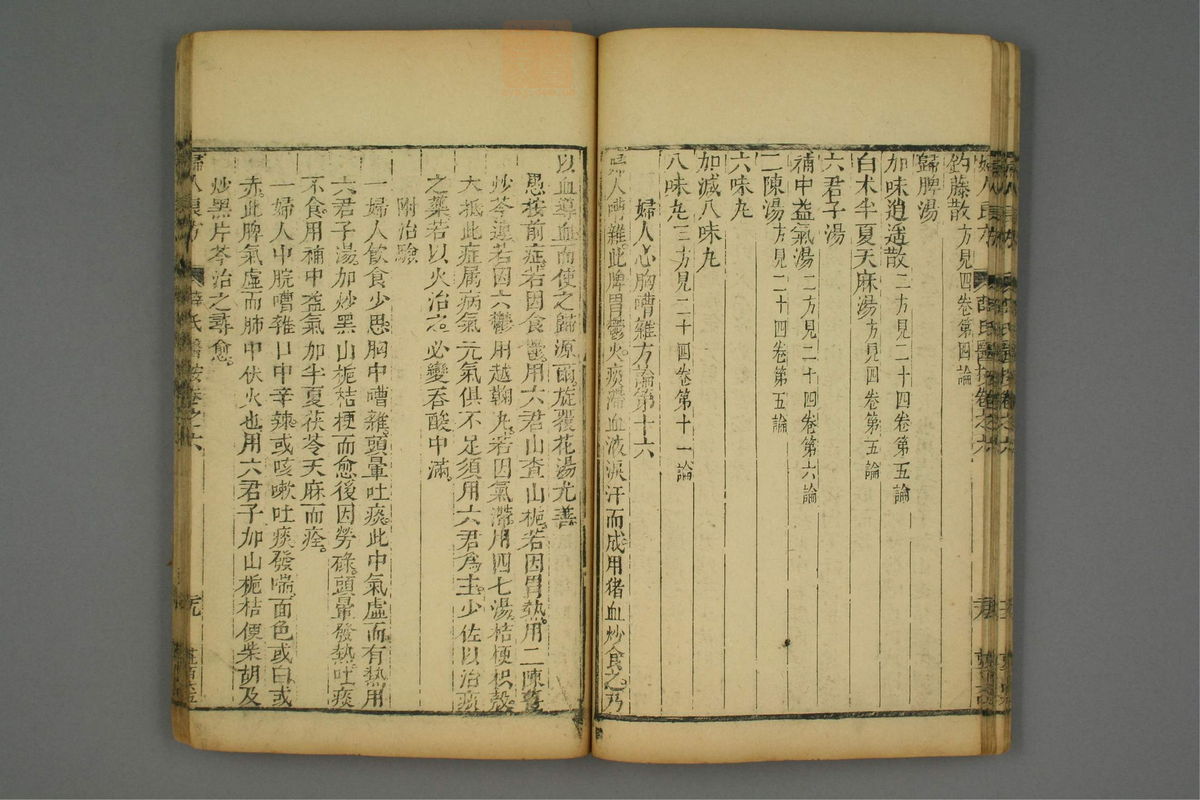 鈎藤散方見四卷第四論
歸脾湯
加味逍遙散二方見二十四卷第五論
白朮半夏天麻湯方見四卷第五論
六君子湯
補中益氣湯二方見二十四卷第六論
二陳湯方見二十四卷第五論
六味丸
加減八味丸
八味丸三方見二十四卷第十一論
婦人心胸嘈雜方論第十六
婦人嘈雜此脾胃鬱火痰滯血液淚汗而成用猪血炒食之乃
以血導血而使之歸源爾旋覆花湯尤善
愚按前症若因食鬱用六君山查山梔若因胃熱用二陳薑
炒芩連若因六鬱用越鞠丸若因氣滯用四七湯桔梗枳殼
大抵此症属病氣元氣俱不足須用六君為主少佐以治痰
之藥若以火治之必變吞酸中滿
附治驗
一婦人飲食少思胸中嘈雜頭暈吐痰此中氣虛而有熱用
六君子湯加炒黑山梔桔梗而愈後因勞碌頭暈發熱吐痰
不食用補中益氣加半夏茯苓天麻而痊
一婦人中脘嘈雜口中辛辣或咳嗽吐痰發喘面色或白或
赤此脾氣虛而肺中伏火也用六君子加山梔桔便柴胡及
炒黑片芩治之尋愈
婦人良方 薛氏醫按卷之六